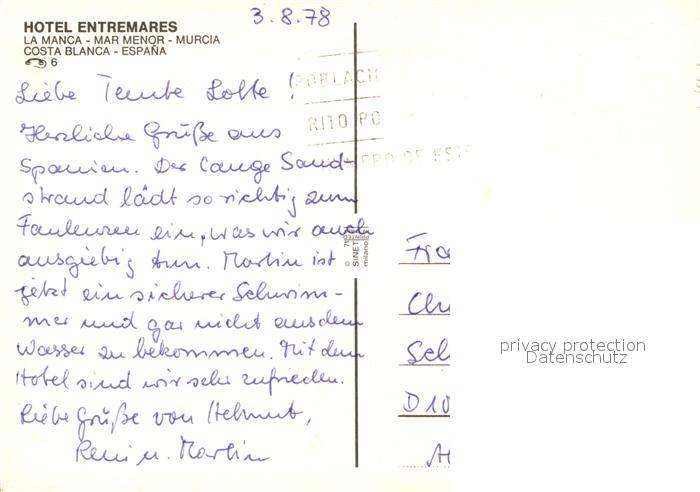 3.8.78
HOTEL ENTREMARES
LA MANCA - MAR MENOR - MURCIA
COSTA BLANCA - ESPAÑA
6
Liebe Tante Lotte!
Herzliche Grüße aus
Spanien. Der lange Sand-
strand lädt so richtig zum
Faulenzen ein, was wir auch
ausgiebig tun. Martin ist
jetzt ein sicherer Schwim-
mer und gar nicht aus dem
Wasser zu bekommen. Mit dem
Hotel sind wir sehr zufrieden.
Liebe Grüße von Helmut,
Reni u. Martin
POBLACI
RITO PO
ERO DE
Fra
Ch
Sch
D 10
privacy protection
Datenschutz